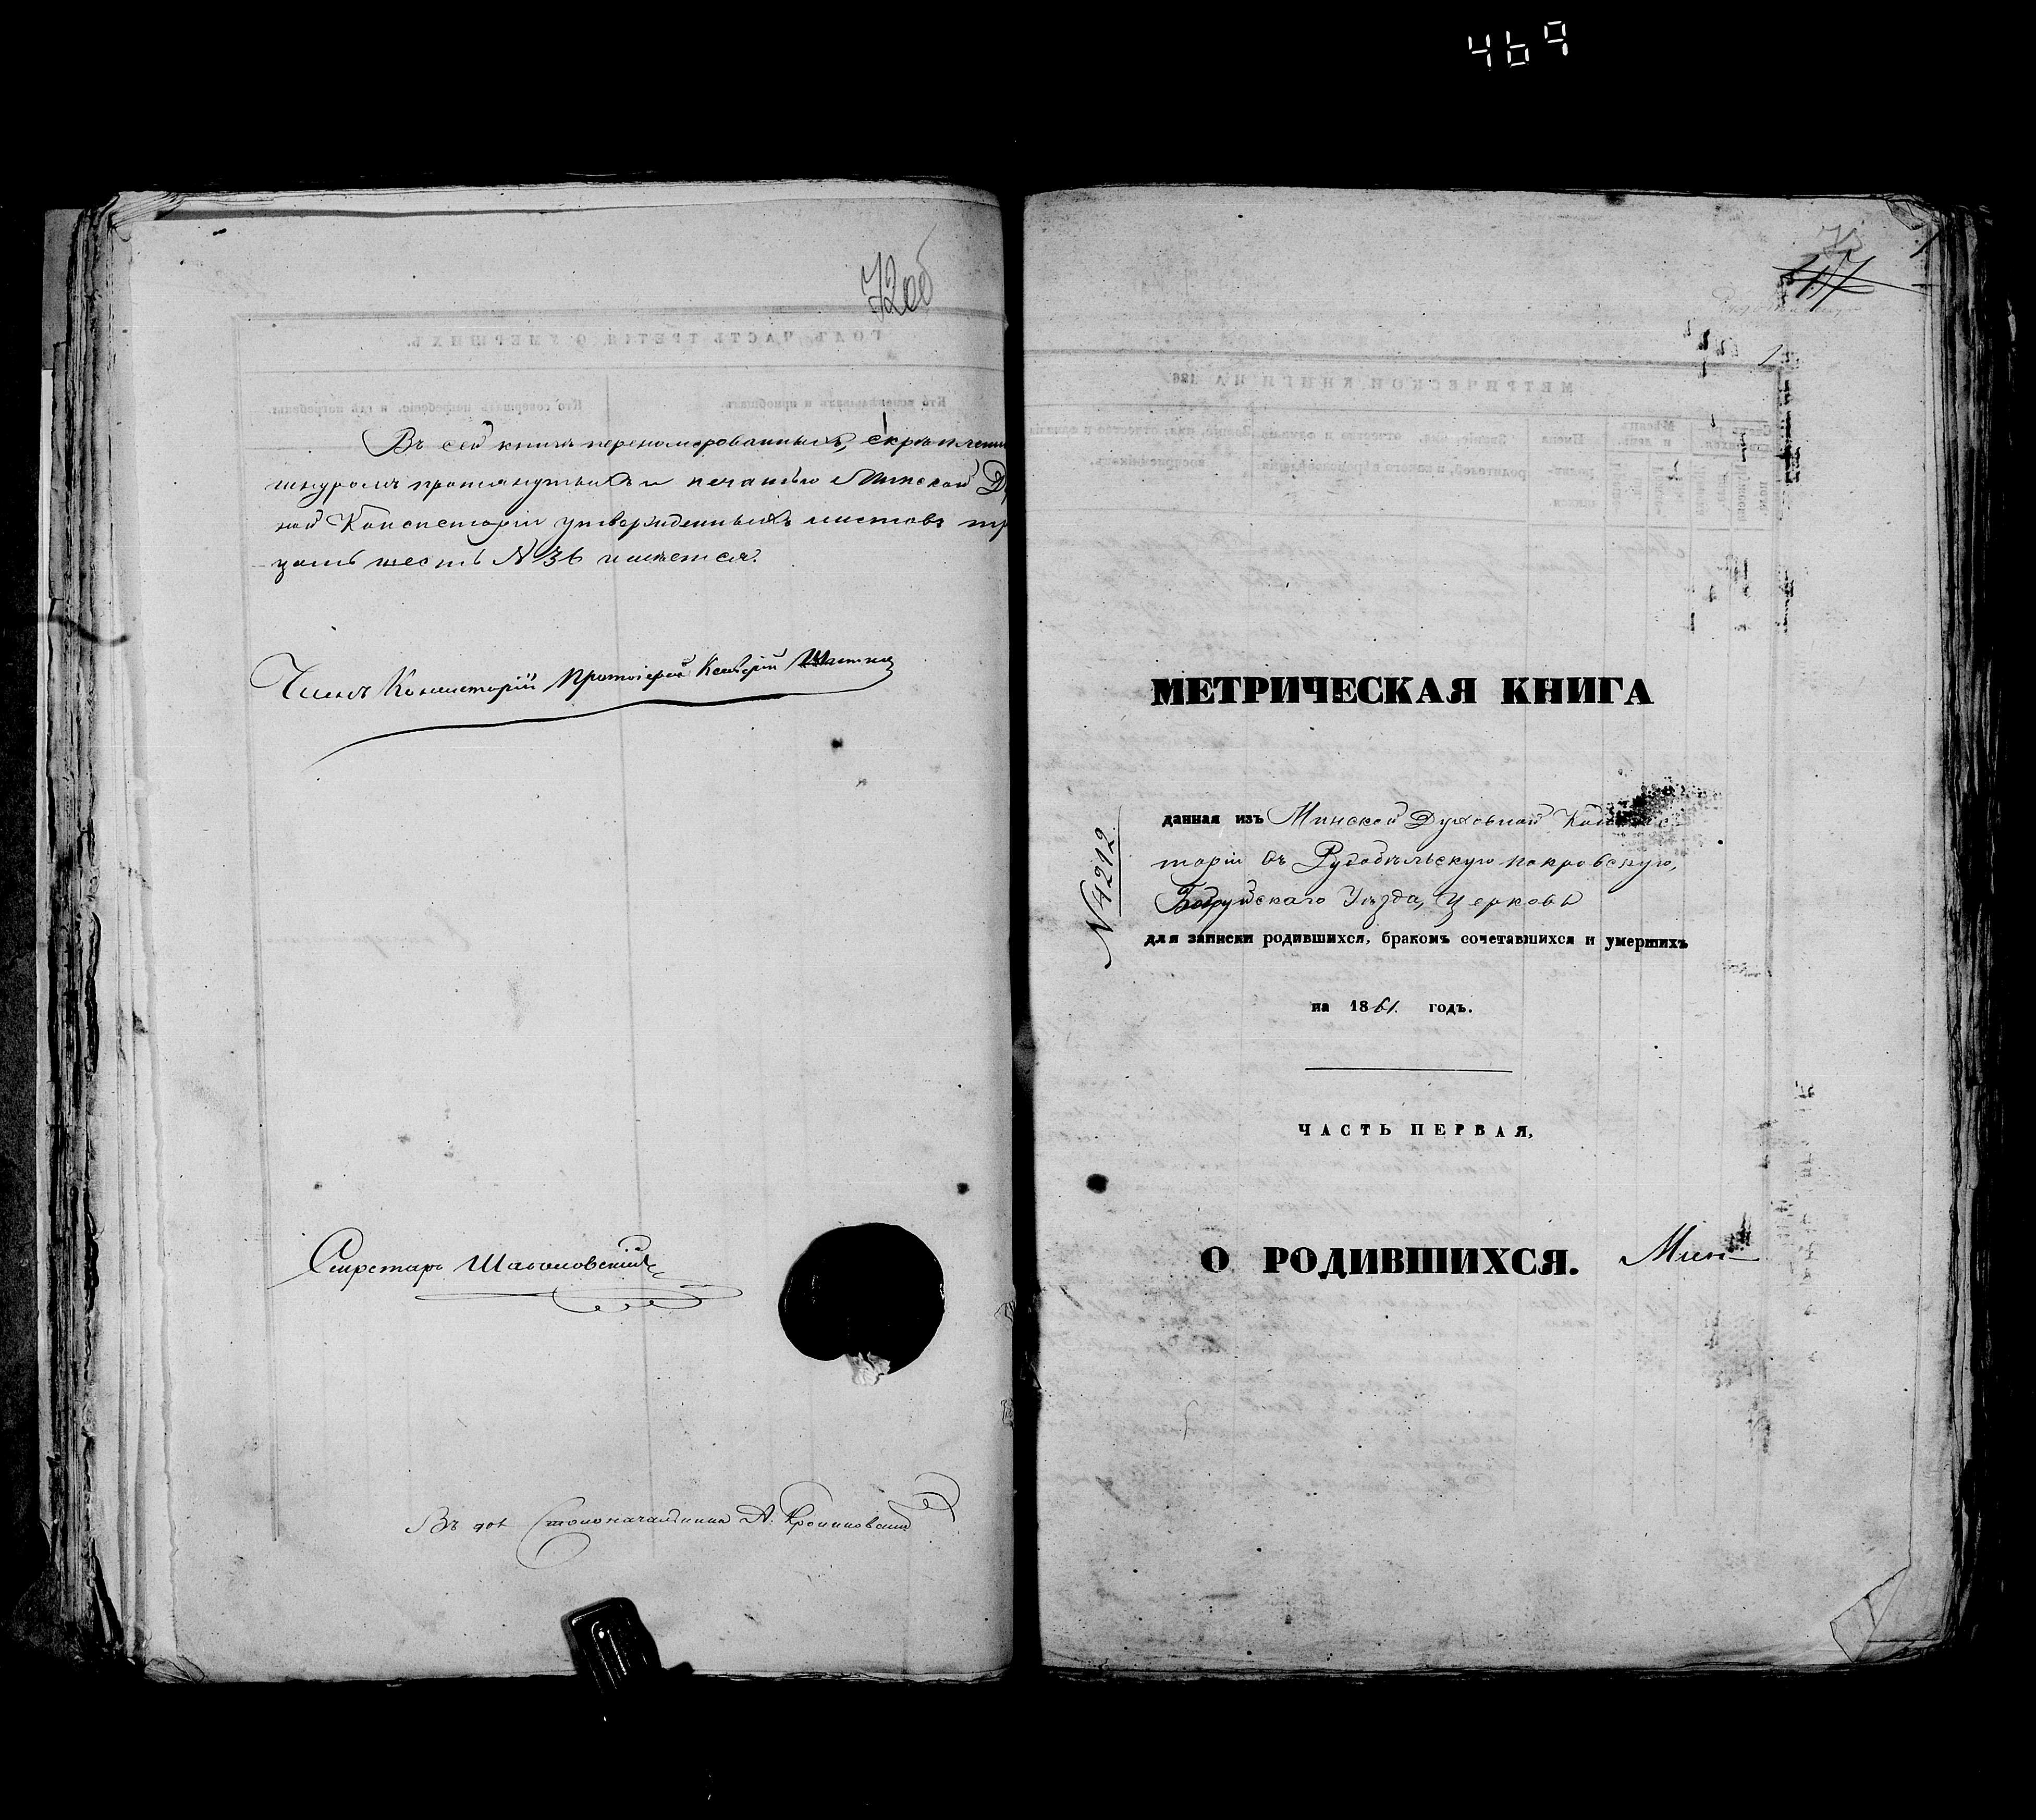 469
72об
Въ сей книгѣ перенумерованныхъ, скрѣпленн
шнуромъ протянутыхъ и печатью Минской Ду
ной Консисторіи утвержденныхъ листовъ тр
цать шесть №36 имѣется.
Членъ Консисторіи Протоіерей
Секретарь
Въ Столоначальника А.
73
МЕТРИЧЕСКАЯ КНИГА
№4212
данная изъ Минской Духовной Консис
торіи въ Рудобѣльскую покровскую,
Бобруйскаго Уѣзда, церковь
для записки родившихся, бракомъ сочетавшихся и умершихъ
на 1861 годъ.
ЧАСТЬ ПЕРВАЯ,
О РОДИВШИХСЯ. Мин